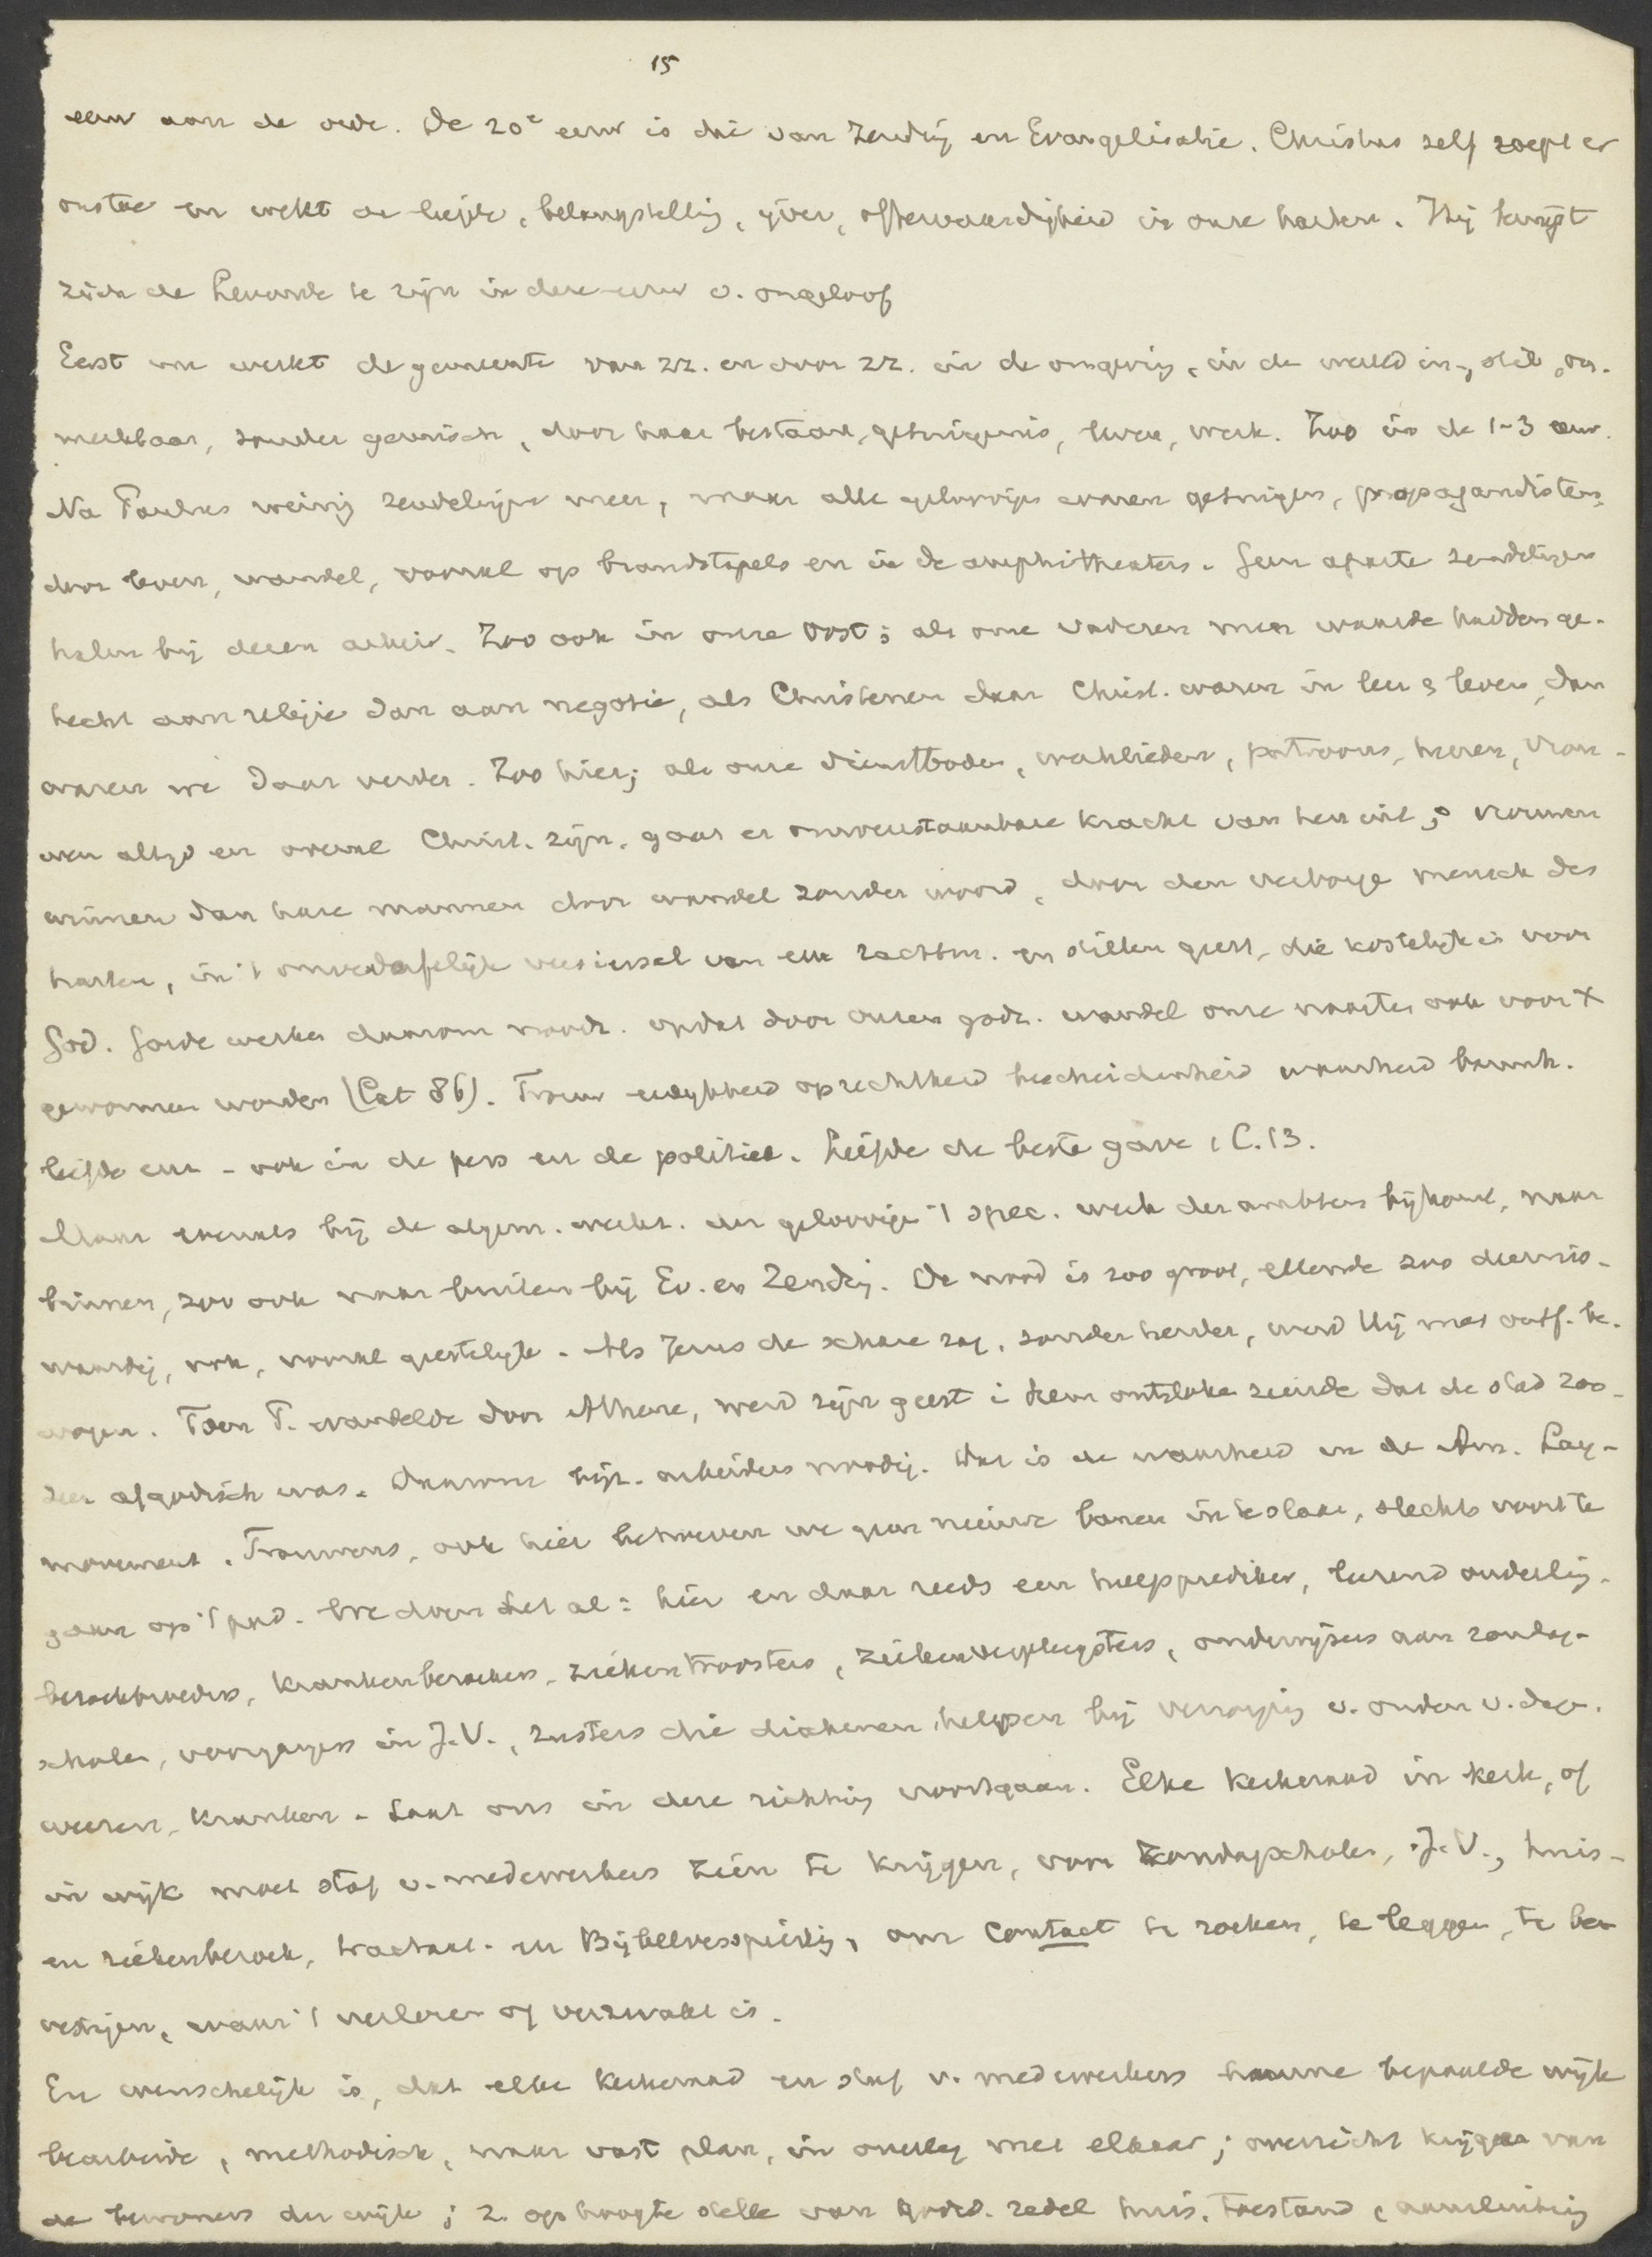 15
eeuw aan de orde. De 20e eeuw is die van Zending en Evangelisatie. Christus zelf roept er
ons toe en wekt de liefde, belangstelling, ijver, offervaardigheid in onze harten. Hij bewijst
zich de Levende te zijn in deze eeuw v. ongeloof
Eerst nu werkt de gemeente van zz. en door zz. in de omgeving, in de wereld in, stil, on-
merkbaar, zonder geruisch, door haar bestaan, getuigenis, leven, werk. Zoo in de 1-3 eeuw.
Na Paulus weinig zendelingen meer, maar alle geloovigen waren getuigen, propagandisten,
door leven, wandel, vooral op brandstapels en in de amphitheaters. Geen aparte zendelingen
halen bij dezen arbeid. Zoo ook in onze Oost; als onze vaderen meer waarde hadden ge-
hecht aan religie dan aan negotie, als Christenen daar Christ. waren in leer & leven, dan
waren we daar verder. Zoo hier; als onze dienstboden, werklieden, patroons, heeren, vrou-
wen altijd en overal Christ. zijn, gaat er onweerstaanbare kracht van hen uit; vrouwen
winnen dan hare mannen door wandel zonder woord, door den verborgen mensch des
harten, in 't onverderfelijk versiersel van een zachtm. en stillen geest, die kostelijk is voor
God. Goede werken daarom noodz. opdat door onzen godz. wandel onze naasten ook voor X
gewonnen worden (Cat 86). Trouw eerlijkheid oprechtheid bescheidenheid waarheid barmh.
liefde enz - ook in de pers en de politiek. Liefde de beste gave 1 C. 13.
Maar evenals bij de algem. werkz. der geloovigen 't spec. werk der ambten bijkomt, naar
binnen, zoo ook naar buiten bij Ev. en Zending. De nood is zoo groot, ellende zoo deernis-
waardig, ook, vooral geestelijke. Als Jezus de schare zag, zonder herder, werd Hij met ontf. be-
wogen. Toen P. wandelde door Athene, werd zijn geest in hem ontstoken ziende dat de stad zoo
zeer afgodisch was. Daarom bijz. arbeiders noodig. Dat is de waarheid in de Am. Lay-
movement. Trouwens, ook hier behoeven we geen nieuwe banen in te slaan, slechts voort te
gaan op 't pad. We doen het al: hier en daar reeds een hulpprediker, leerend ouderling,
bezoekbroeders, krankenbezoekers, ziekentroosters, ziekenverpleegsters, onderwijzers aan zondag-
scholen, voorgangers in J.V., zusters die diakenen helpen bij verzorging v. ouden v. dagen.
weezen, kranken. Laat ons in deze richting voortgaan. Elke kerkeraad in kerk, of
in wijk moet staf v. medewerkers zien te krijgen, voor Zondagscholen, J.V., huis-
en ziekenbezoek, tractaat- en Bijbelverspreiding, om contact te zoeken, te leggen, te be-
vestigen, waar 't verloren of verzwakt is.
En wenschelijk is, dat elke kerkeraad en staf v. medewerkers hunne bepaalde wijk
bearbeide, methodisch, naar vast plan, in overleg met elkaar; overzicht krijgen van
de bewoners der wijk; 2. op hoogte stelle van godsd. zedel huis. toestand, aansluiting